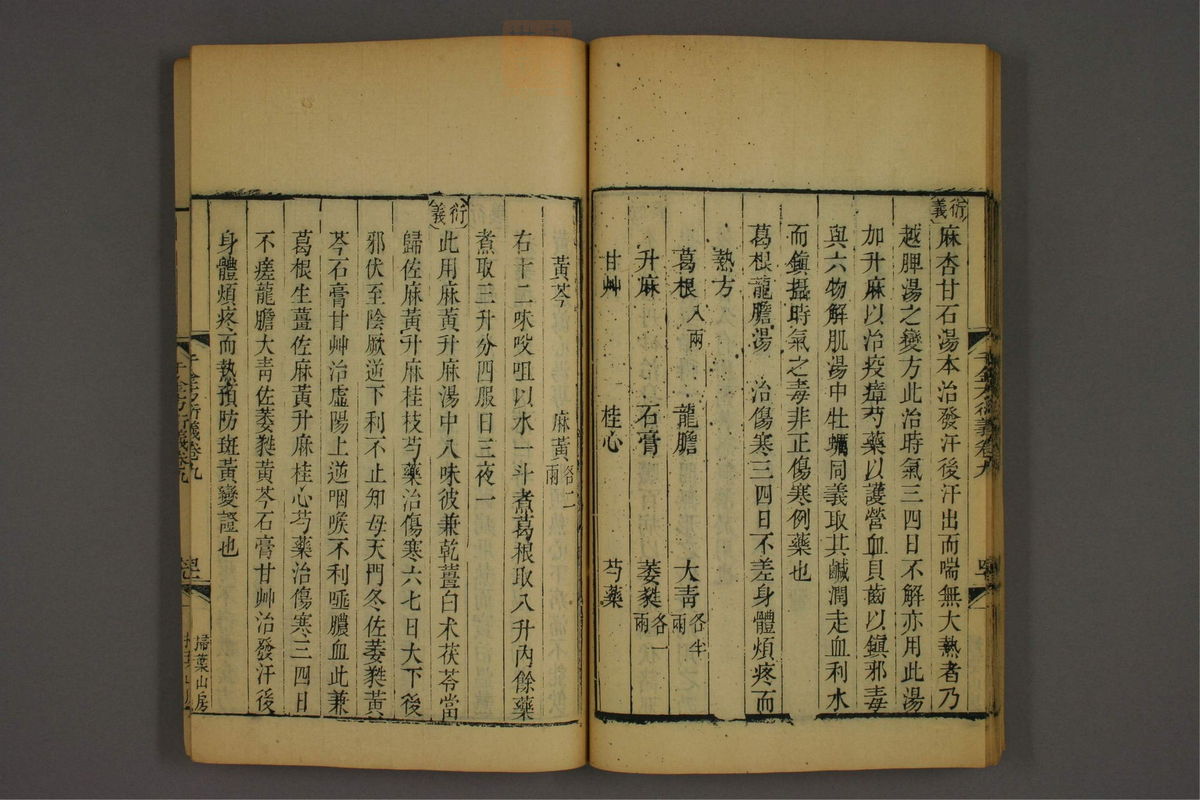 衍義
麻杏甘石湯本治發汗後汗出而喘無大熱者乃
越脾湯之變方此治時氣三四日不解亦用此湯
加升麻以治疫瘴芍藥以護營血貝齒以鎮邪毒
與六物解肌湯中牡蠣同義取其鹹潤走血利水
而鎮攝時氣之毒非正傷寒例藥也
葛根龍膽湯 治傷寒三四日不差身體煩疼而
熱方
葛根八兩 龍膽 大青各半兩
升麻 石膏 萎蕤各一兩
甘艸 桂心 芍藥
黃芩 麻黃各二兩
右十二味㕮咀以水一斗煮葛根取八升內餘藥
煮取三升分四服日三夜一
衍義
此用麻黃升麻湯中八味彼兼乾薑白术茯苓當
歸佐麻黃升麻桂枝芍藥治傷寒六七日大下後
邪伏至陰厥逆下利不止知母天門冬佐萎蕤黃
芩石膏甘艸治虛陽上逆咽喉不利唾膿血此兼
葛根生薑佐麻黃升麻桂心芍藥治傷寒三四日
不瘥龍膽大青佐萎蕤黃芩石膏甘艸治發汗後
身體煩疼而熱預防斑黃變證也
千金方衍義卷九
掃葉山房